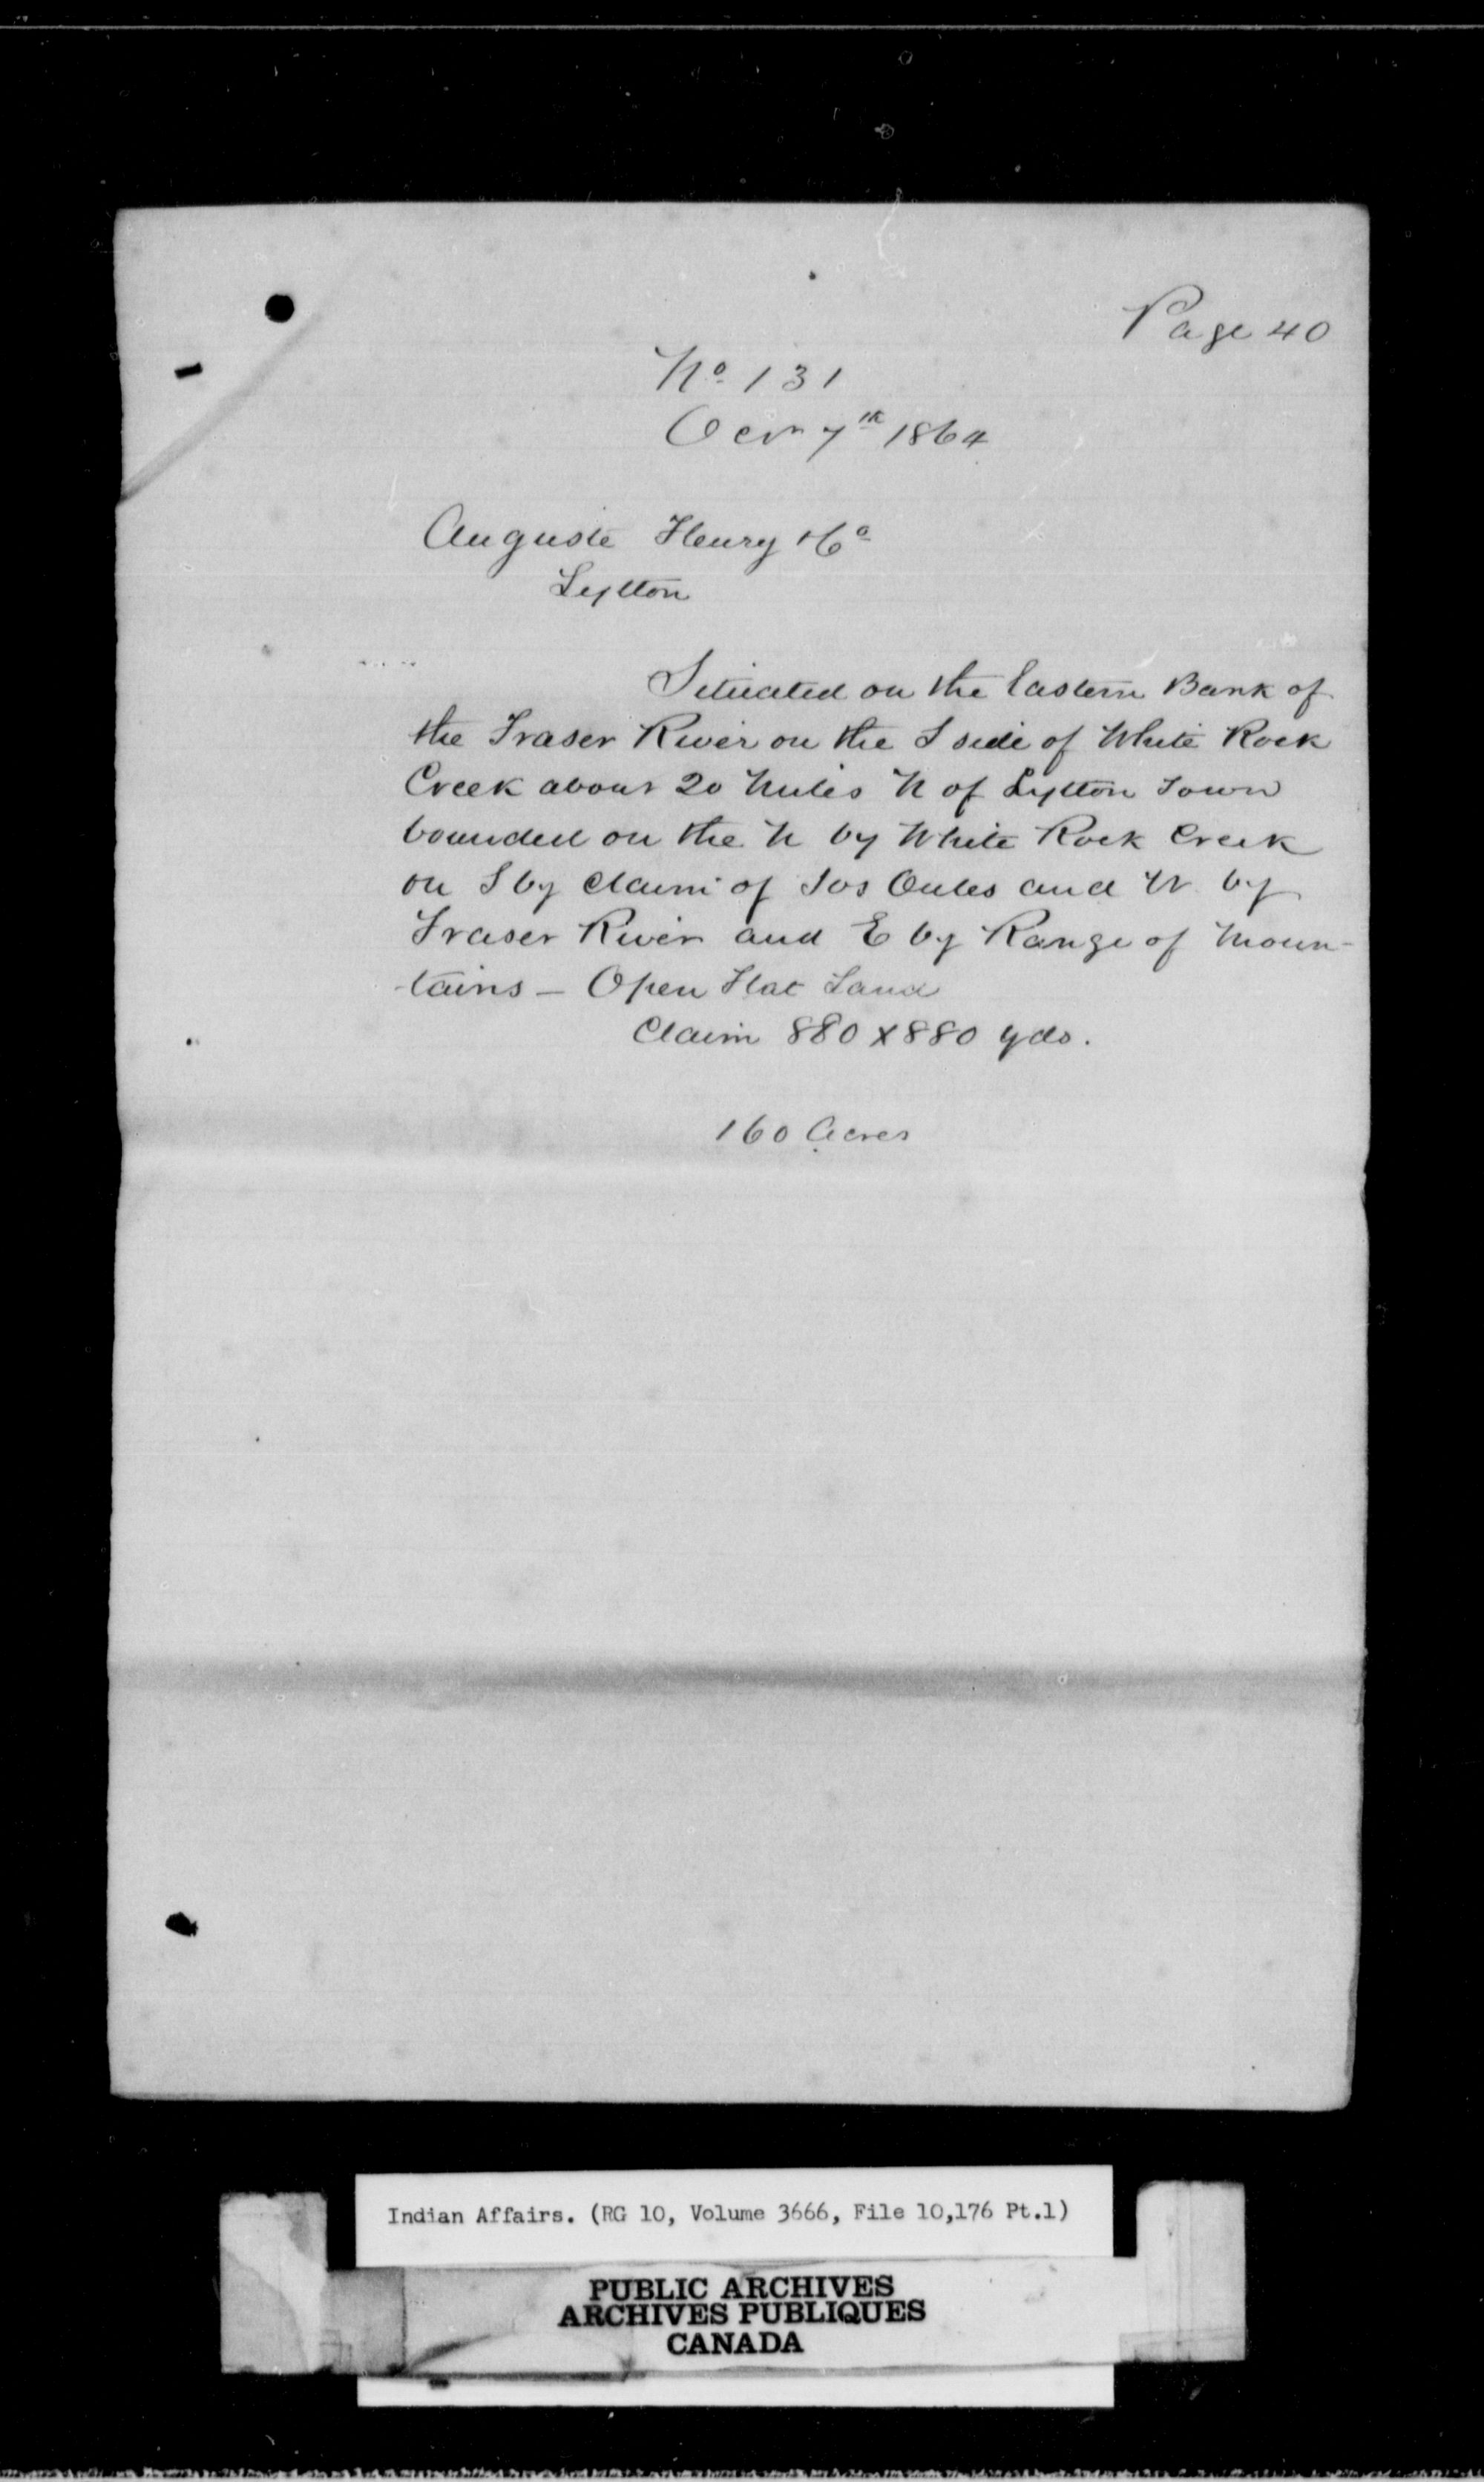 Page 40
No 131
Oct 7th 1864
Auguste Fleury & Co
Lytton
Situated on the Eastern Bank of
the Fraser River on the S side of White Rock
Creek about 20 Miles N of Lytton Town
bounded on the N by White Rock Creek
on S by claim of Jos and W by
Fraser River and E by Range of Moun-
-tains — Open Flat Land
Claim 880 x 880 yds.
160 Acres
Indian Affairs. (RG 10, Volume 3666, File 10,176 Pt.1)
PUBLIC ARCHIVES
ARCHIVES PUBLIQUES
CANADA